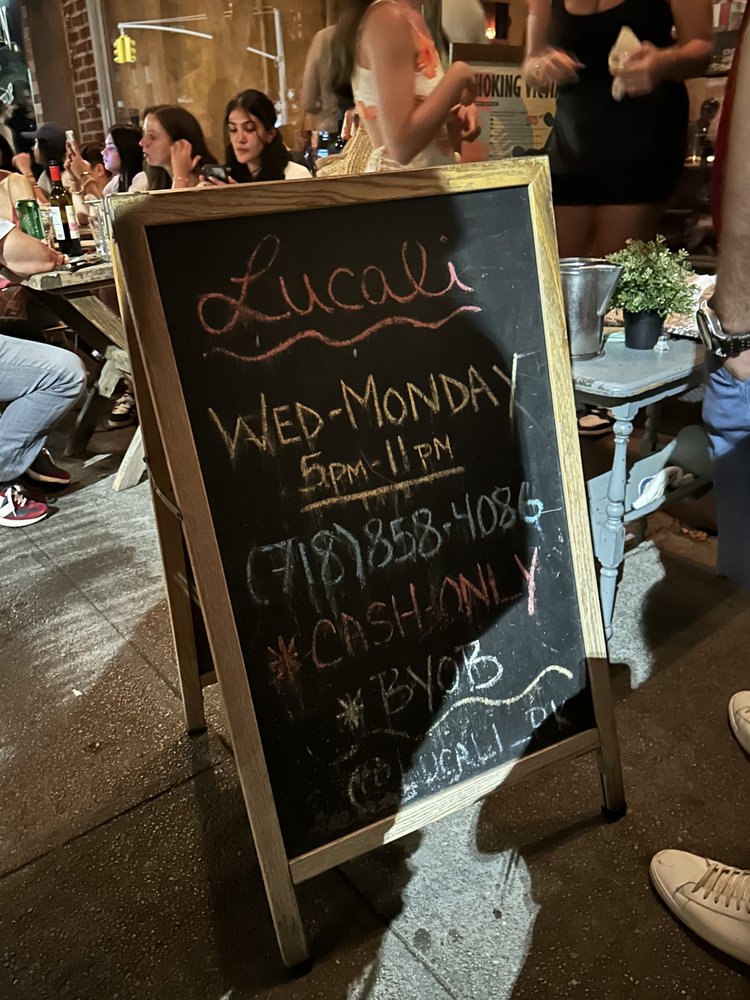 HOKING VICTIM
Lucali
WED-MONDAY
5PM-11PM
(718)858-4086
*CASH-ONLY
*BYOB
@LUCALI_BK